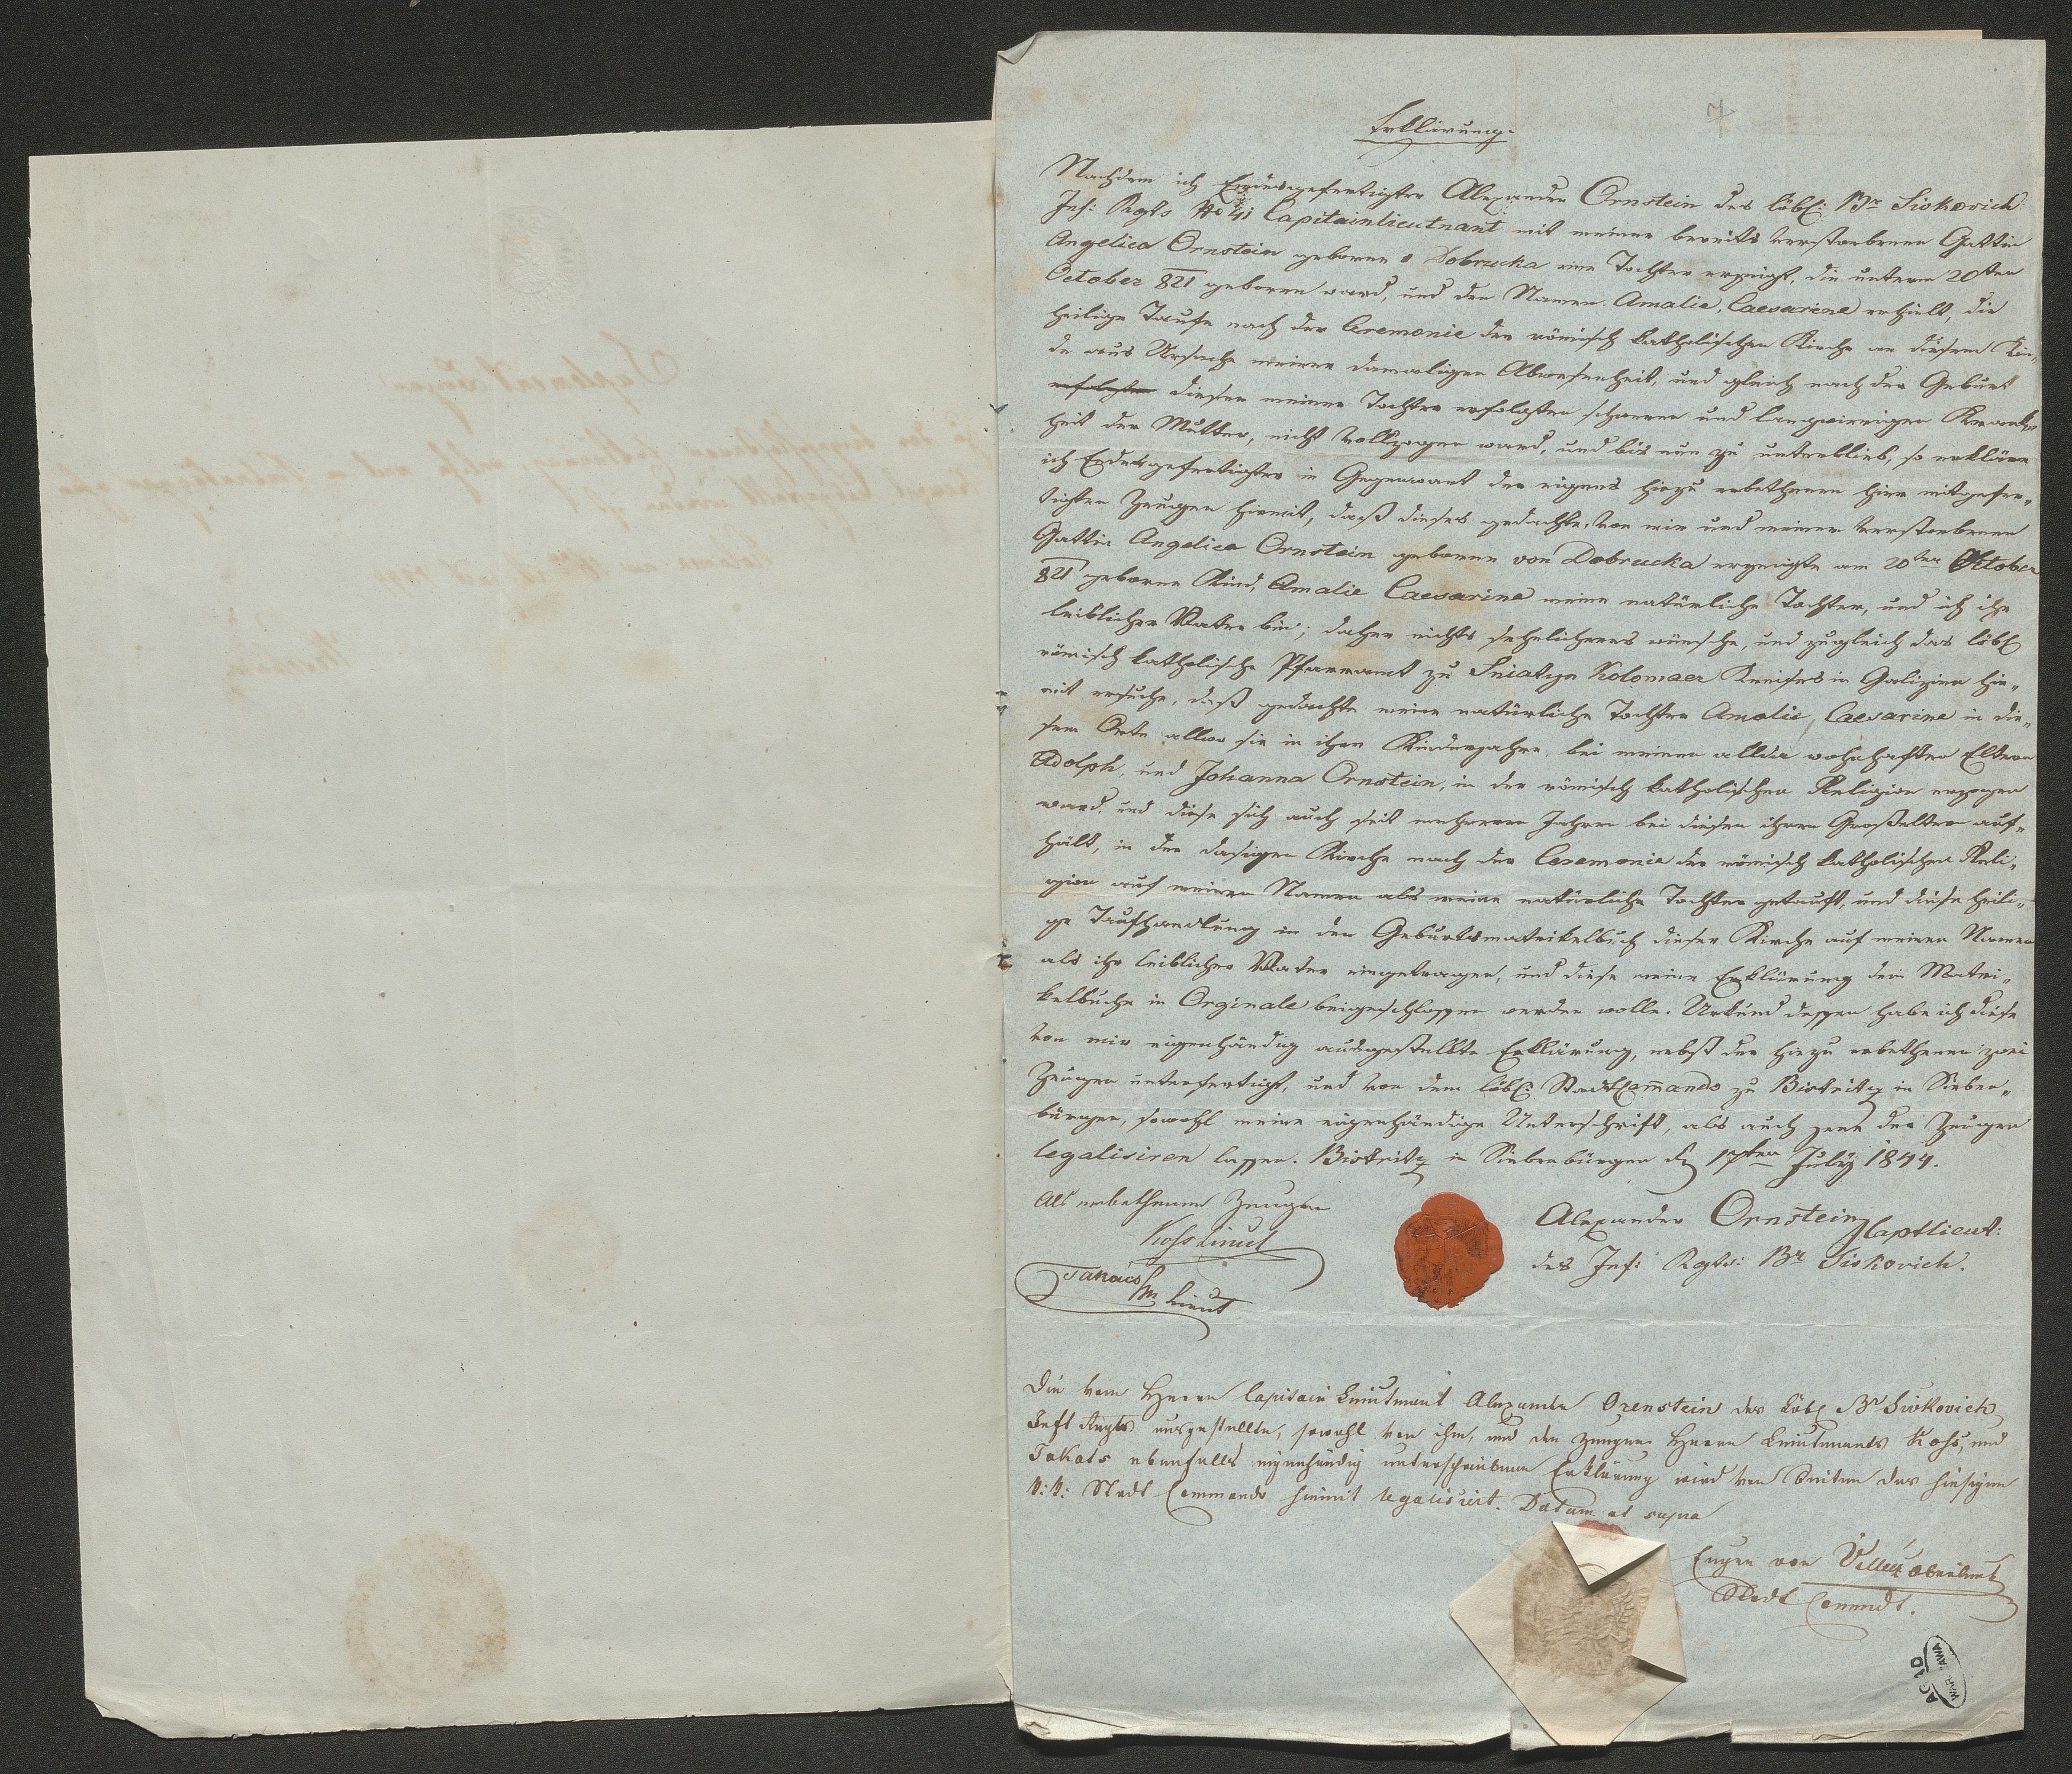 7
Erklärung.
Nachdem ich Endesgefertigter Alexander Ornstein des löbl: Br Sivkovich
Inf: Rgts No 41 Capitainlieutnant mit meiner bereits verstorbenen Gattin
Angelica Ornstein geborne v Dobrucka eine Tochter erzeigt, die unterm 20ten
October 821 geboren ward, und den Namen Amalie, Caesarine erhielt, die
heilige Taufe nach der Ceremonie der römisch katholischen Kirche an diesem Kin„
de aus Ursache meiner damaligen Abwesenheit, und gleich nach der Geburt
erfolgten dieser meiner Tochter erfolgten schweren und langwierigen Krank„
heit der Mutter, nicht vollzogen ward, und bis nun zu unterblieb, so erkläre
ich Endesgefertigter in Gegenwart der eigens hiezu erbethenen hier mitgefer„
tigten Zeugen hiemit, daß dieses gedachte, von mir und meiner verstorbenen
Gattin Angelica Ornstein geborne von Dobrucka erzeigte am 20ten October
821 geborne Kind, Amalie Caesarine meine natürliche Tochter, und ich ihr
leiblicher Vater bin; daher nichts sehnlicheres wünsche, und zugleich das löbl
römisch katholische Pfarramt zu Sniatyn Kolomaer Kreises in Galizien hie„
mit ersuche, daß gedachte meine natürliche Tochter Amalie, Caesarine in die„
sem Orte allwo sie in ihren Kinderjahre bei meinen allda wohnhaften Eltern
Adolph, und Johanna Ornstein, in der römisch katholischen Religion erzogen
ward, und diese sich auch seit mehreren Jahren bei diesen ihren Großeltern auf„
hält, in der dasigen Kirche nach der Ceremonie der römisch katholischen Reli„
gion auf meinen Namen als meine natürliche Tochter getauft, und diese heili„
ge Taufhandlung in den Geburtsmatrikelbuch dieser Kirche auf meinen Namen
als ihr leiblicher Vater eingetragen, und diese meine Erklärung dem Matri„
kelbuche in Orginale beigeschlossen werden wolle. Urkund dessen habe ich diese
von mir eigenhändig ausgestellte Erklärung, nebst der hiezu erbethenen zwei
Zeugen unterfertigt, und von dem löbl: Stadt Commando zu Bistritz in Sieben„
bürgen, sowohl meine eigenhändige Unterschrift, als auch jene der Zeugen
legalisiren lassen. Bistritz in Siebenbürgen den 17ten July 1844.
Als erbethenen Zeugen
Kohs Lieut
Takacs Lieut
Alexander Ornstein Captlieut:
des Inf: Rgts: Br Sivkovich.
Die vom Herrn Capitain Leutnant Alexander Orenstein des Löbl Br Sivkovich
Inft Regts ausgestellte, sowohl von ihm, und den Zeugen Herrn Leutnants Kohs, und
Takats ebenfalls eigenhändig unterschriebene Erklärung wird von Seiten des hiesigen
k: k: Stadt Commando hiemit legalisirt. Datum ut supra
Eugen von Oberlieut
Stadt Commdt.
AGAD
WARSZAWA